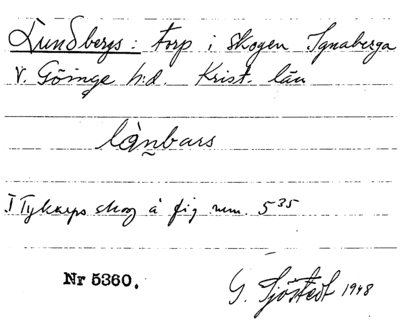 Lundbergs: torp i skogen Ignaberga
V. Göinge h:d. Krist. län
lànbars
I Tykarps skog å fig num. 5³⁵
Nr 5360.
G. Sjöstedt 1948